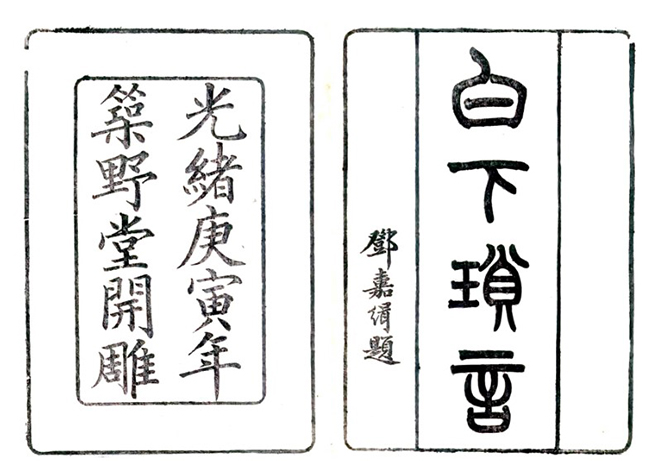 白下瑣言
鄧嘉緝題
光緒庚寅年
築野堂開雕